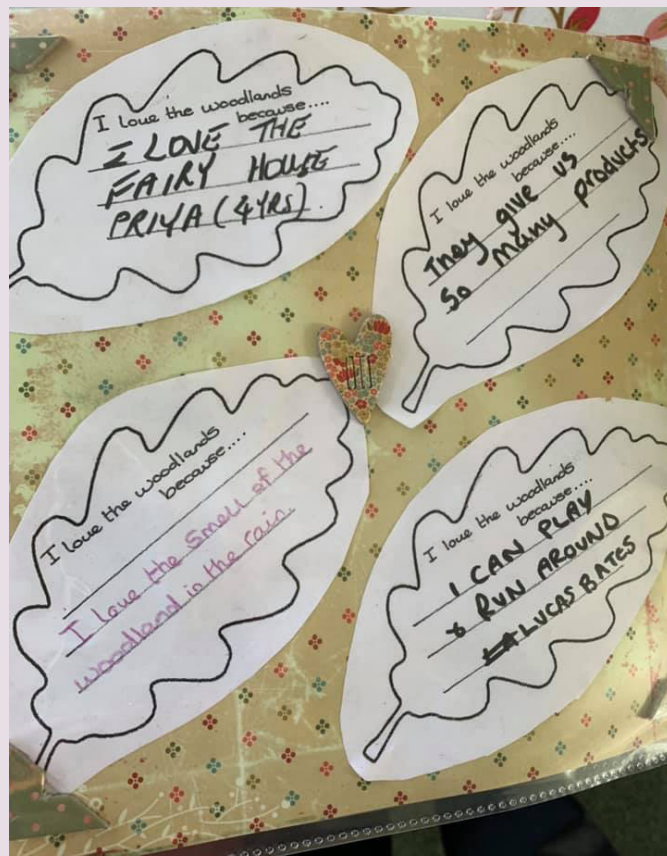 I love the woodlands
because....
I LOVE THE
FAIRY HOUSE
PRIYA (4YRS).
I love the woodlands
because....
They give us
so many products
I love the woodlands
because....
I love the smell of the
woodland in the rain.
I love the woodlands
because....
I CAN PLAY
& RUN AROUND
LUCAS BATES